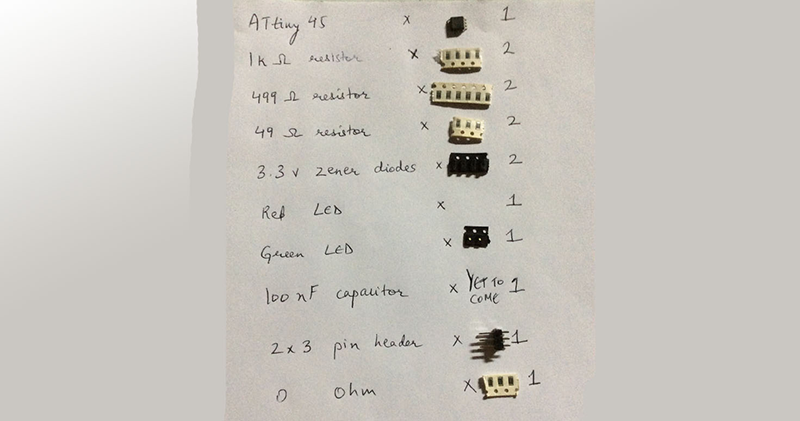 ATtiny 45 x 1
1k Ω resistor x 2
499 Ω resistor x 2
49 Ω resistor x 2
3.3 v zener diodes x 2
Red LED x 1
Green LED x 1
100 nF capacitor x YET TO COME 1
2x3 pin header x 1
0 ohm x 1